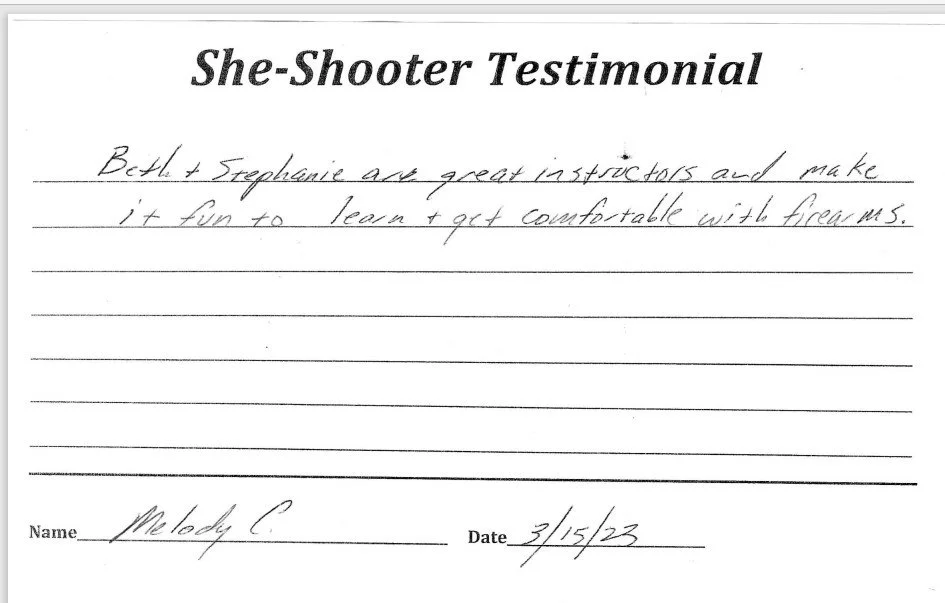 She-Shooter Testimonial
Beth + Stephanie are great instructors and make
it fun to learn + get comfortable with firearms.
Name Melody C.
Date 3/15/23